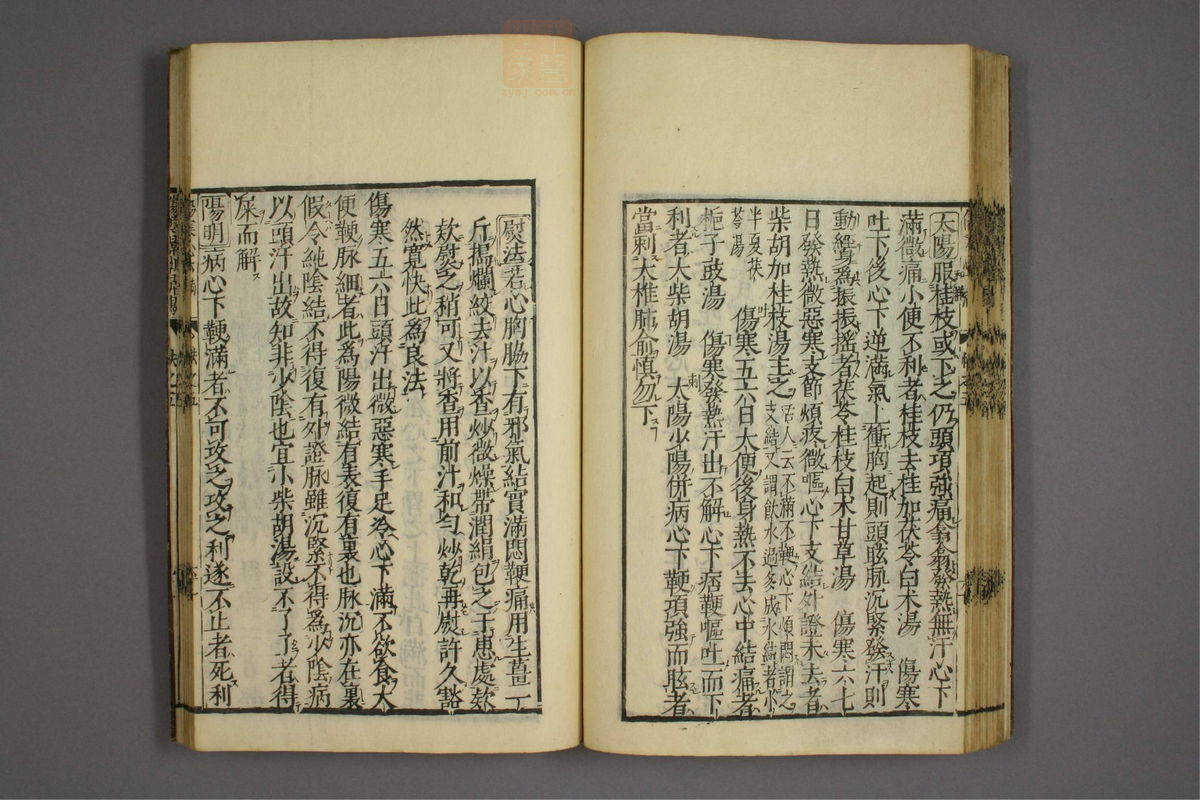 太陽服桂枝或下之仍頭項強痛翕翕發熱無汗心下
滿微痛小便不利者桂枝去桂加茯苓白朮湯　傷寒
吐下後心下逆滿氣上衝胸起則頭眩脉沉緊發汗則
動經爲振振搖者茯苓桂枝白朮甘草湯　傷寒六七
日發熱微惡寒支節煩疼微嘔心下支結外證未去者
柴胡加桂枝湯主之支結又謂飲水過多成水結者小活人云不滿不鞕心下煩悶謂之
半夏茯苓湯　傷寒五六日大便後身熱不去心中結痛者
梔子豉湯　傷寒發熱汗出不解心下痞鞕嘔吐而下
利者大柴胡湯　太陽少陽併病心下鞕項強而眩者
當刺大椎肺俞慎勿下
熨法若心胸脇下有邪氣結實滿悶鞕痛用生薑一
斤搗爛絞去汁以査炒微燥帶潤絹包之于患處款
款熨之稍可又將査用前汁和勻炒乾再熨許久豁
然寬快此爲良法
傷寒五六日頭汗出微惡寒手足冷心下滿不欲食大
便鞕脉細者此爲陽微結有表復有裏也脉沉亦在裏
假令純陰結不得復有外證脉雖沉緊不得爲少陰病
以頭汗出故知非少陰也宜小柴胡湯設不了了者得
屎而解
陽明病心下鞕滿者不可攻之攻之利遂不止者死利